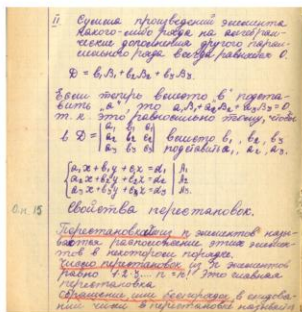 II Сумма произведений элемента
какого-либо ряда на алгебраи-
ческие дополнения другого парал-
лельного ряда всегда равняется 0.
D = b₁B₁ + b₂B₂ + b₃B₃.
Если теперь вместо „b" подста-
вить „a", то a₁B₁+a₂B₂+a₃B₃=0
т. к. это равносильно тому, чтобы
в D = | a₁ b₁ c₁ | вместо b₁, b₂, b₃
| a₂ b₂ c₂ |
| a₃ b₃ c₃ | подставить a₁, a₂, a₃.
a₁x + b₁y + c₁z = d₁ | A₁
a₂x + b₂y + c₂z = d₂ | A₂
a₃x + b₃y + c₃z = d₃ | A₃
Свойства перестановок.
Оп. 15
Перестановкой из n элементов назы-
вается расположение этих элемен-
тов в некотором порядке.
Число перестановок из n элементов
равно 1·2·3... n = n! Это главная
перестановка
или беспорядки, в
чисел в перестановке